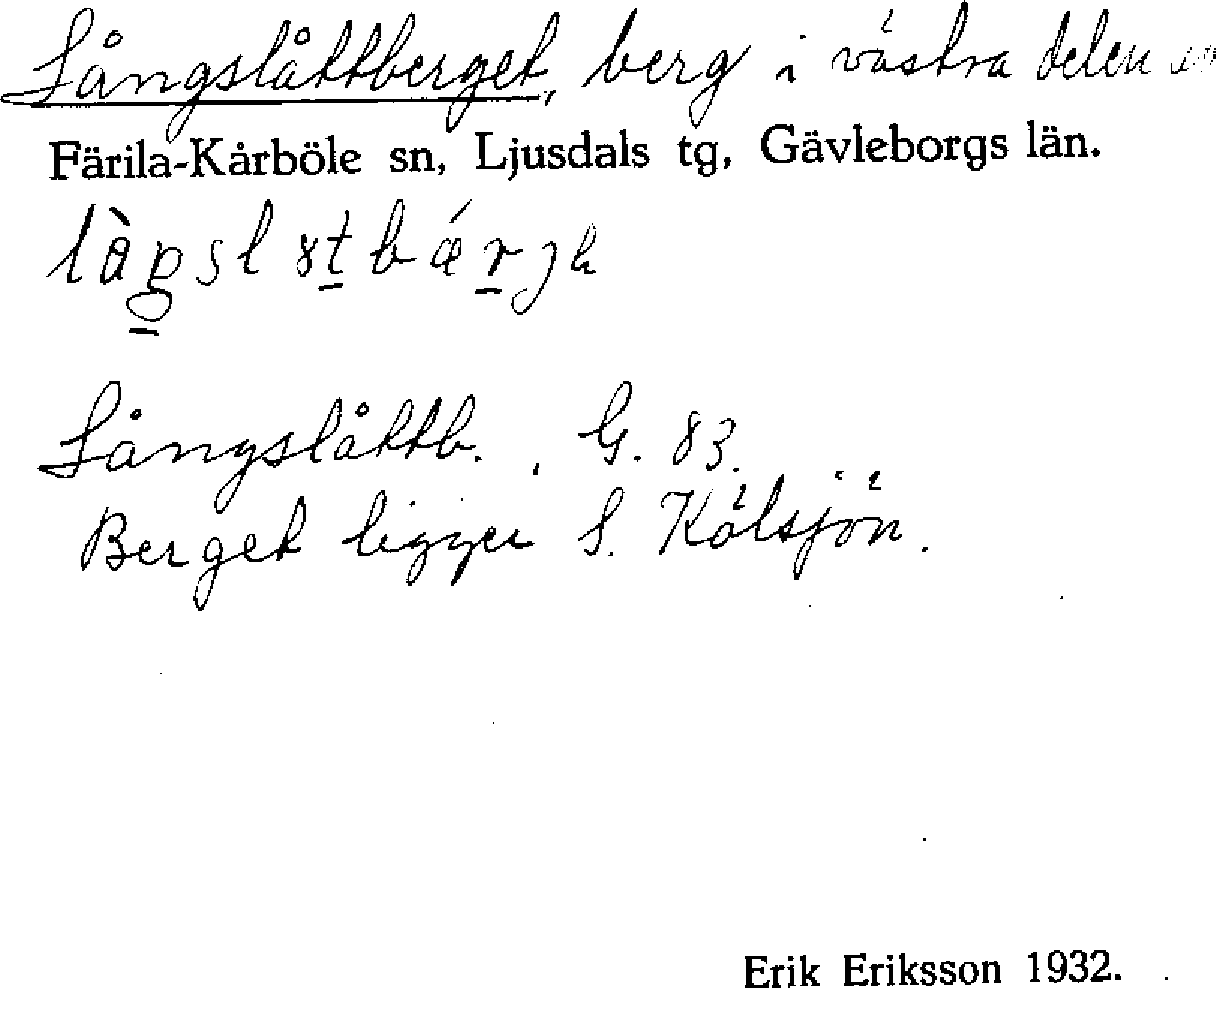 Långslåttberget, berg i västra delen av
Färila-Kårböle sn, Ljusdals tg, Gävleborgs län.
Långslåttb. , G. 83.
Berget ligger S. Kölsjön.
Erik Eriksson 1932.